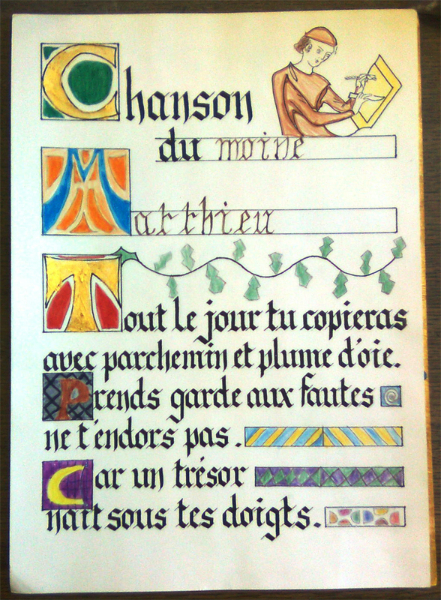 Chanson
du moine
Matthieu
Tout le jour tu copieras
avec parchemin et plume d'oie.
Prends garde aux fautes
ne t'endors pas.
Car un trésor
naît sous tes doigts.